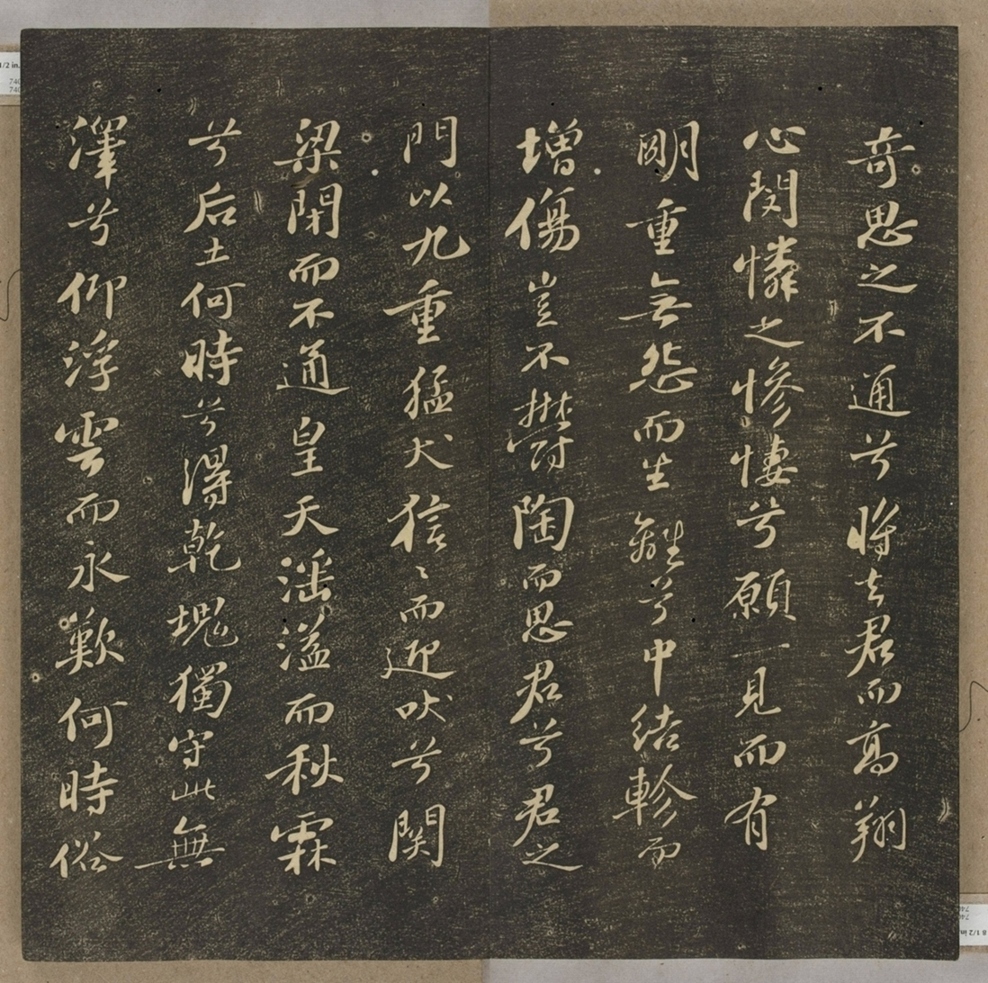 奇思之不通兮將去君而高翔
心閔憐之慘悽兮願一見而有
明重無怨而生離兮中結軫而
增傷豈不鬱陶而思君兮君之
門以九重猛犬狺〻而迎吠兮関
梁閉而不通皇天滛溢而秋霖
兮后土何時兮得乾塊獨守此無
澤兮仰浮雲而永歎何時俗